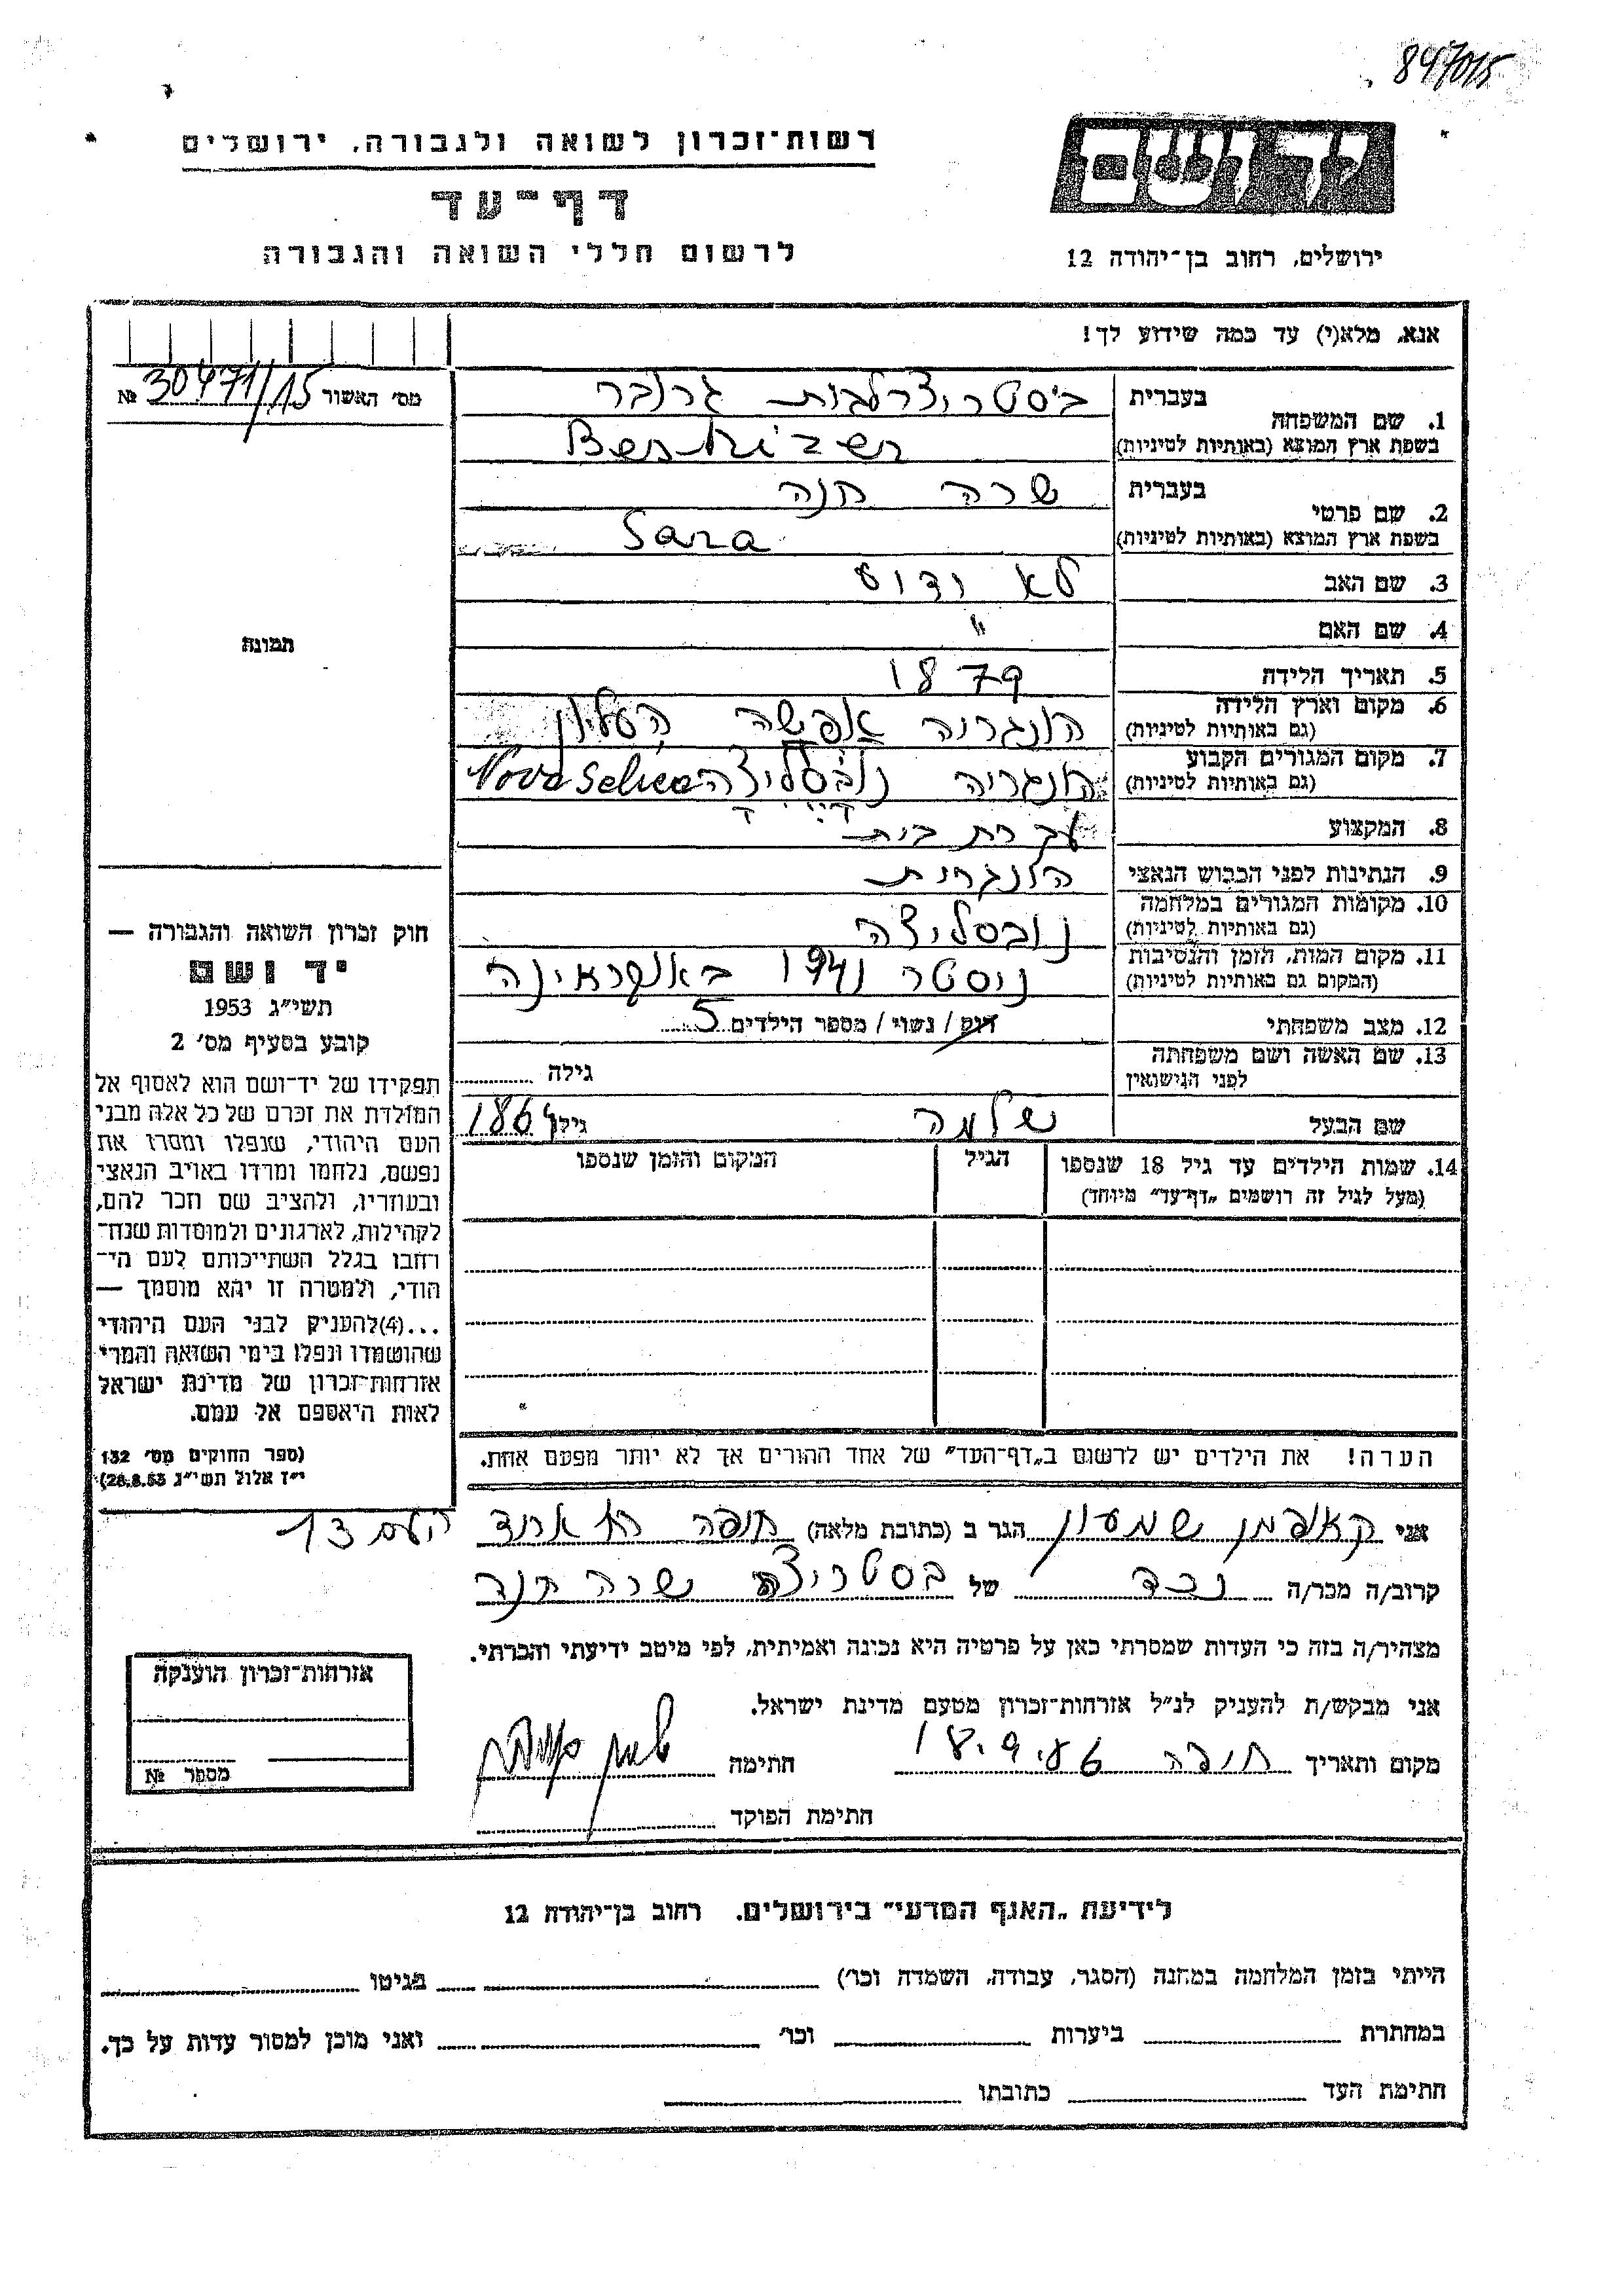 847015
רשות־זכרון לשואה ולגבורה, ירושלים
דף־עד
לרשום חללי השואה והגבורה
יד ושם
ירושלים, רחוב בן־יהודה 12
אנא, מלא(י) עד כמה שידוע לך!
מס' האשור 30471/15 №
בעברית
1. שם המשפחה
בשפת ארץ המוצא (באותיות לטיניות)
גרובר
בעברית שרה חנה
2. שם פרטי
בשפת ארץ המוצא (באותיות לטיניות) Sara
3. שם האב לא ידוע
4. שם האם "
5. תאריך הלידה 1879
6. מקום וארץ הלידה
(גם באותיות לטיניות)
הונגריה אפשה העליון
7. מקום המגורים הקבוע
(גם באותיות לטיניות)
הונגריה נובסליצה Nova
8. המקצוע עקרת בית
9. הנתינות לפני הכבוש הנאצי הונגרית
10. מקומות המגורים במלחמה
(גם באותיות לטיניות)
נובסליצה
11. מקום המות, הזמן והנסיבות
(המקום גם באותיות לטיניות)
ניסטר 1941 באוקראינה
12. מצב משפחתי רווק / נשוי / מספר הילדים 5
13. שם האשה ושם משפחתה
לפני הנישואין
גילה
שם הבעל שלמה גילו 1864
14. שמות הילדים עד גיל 18 שנספו
(מעל לגיל זה רושמים „דף־עד" מיוחד)
הגיל
המקום והזמן שנספו
הערה! את הילדים יש לרשום ב„דף־העד" של אחד ההורים אך לא יותר מפעם אחת.
תמונה
חוק זכרון השואה והגבורה —
יד ושם
תשי"ג 1953
קובע בסעיף מס' 2
תפקידו של יד־ושם הוא לאסוף אל
המולדת את זכרם של כל אלה מבני
העם היהודי, שנפלו ומסרו את
נפשם, נלחמו ומרדו באויב הנאצי
ובעוזריו, ולהציב שם וזכר להם,
לקהילות, לארגונים ולמוסדות שנח־
רבו בגלל השתייכותם לעם הי־
הודי, ולמטרה זו יהא מוסמך —
...(4) להעניק לבני העם היהודי
שהושמדו ונפלו בימי השואה והמרי
אזרחות־זכרון של מדינת ישראל
לאות היאספם אל עמם.
(ספר החוקים מס' 132
י"ז אלול תשי"ג 28.8.53)
אני קאופמן שמעון הגר ב (כתובת מלאה) חיפה 13
קרוב/ה מכר/ה נכד של שרה חנה
מצהיר/ה בזה כי העדות שמסרתי כאן על פרטיה היא נכונה ואמיתית, לפי מיטב ידיעתי והכרתי.
אני מבקש/ת להעניק לנ"ל אזרחות־זכרון מטעם מדינת ישראל.
מקום ותאריך חיפה 18.9.76 חתימה
חתימת הפוקד
אזרחות־זכרון הוענקה
מספר №
לידיעת „האגף המדעי" בירושלים, רחוב בן־יהודה 12
הייתי בזמן המלחמה במחנה (הסגר, עבודה, השמדה וכו') בגיטו
במחתרת ביערות וכו' ואני מוכן למסור עדות על כך.
חתימת העד כתובתו